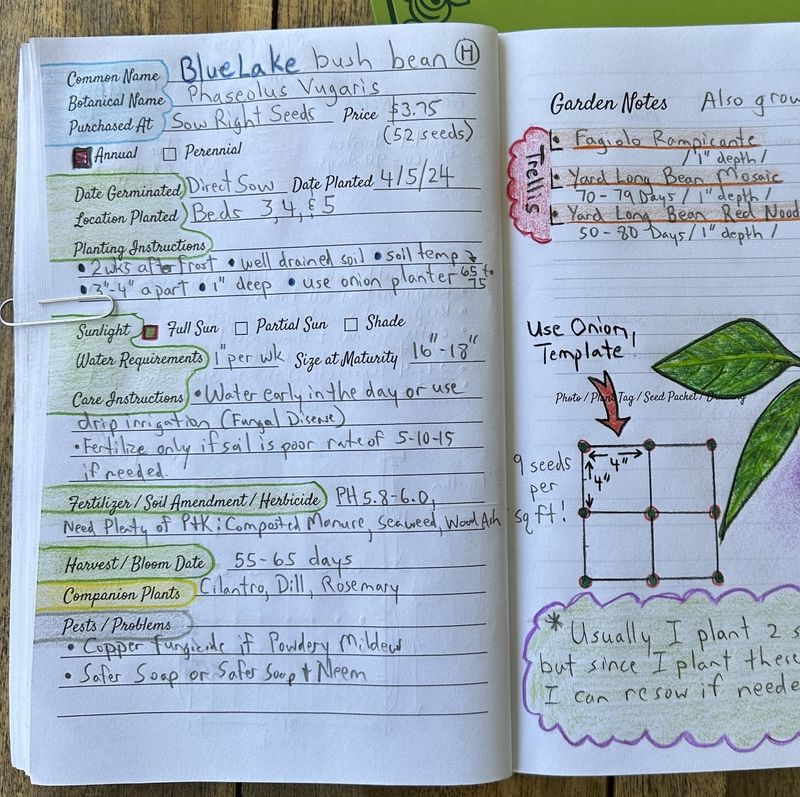 Common Name BlueLake bush bean H
Botanical Name Phaseolus Vugaris
Purchased At Sow Right Seeds Price $3.75
(52 seeds)
Annual Perennial
Date Germinated Direct Sow Date Planted 4/5/24
Location Planted Beds 3, 4, & 5
Planting Instructions
• 2wks after frost • well drained soil • soil temp
• 3"-4" apart • 1" deep • use onion planter 65 to 75
Sunlight Full Sun Partial Sun Shade
Water Requirements 1" per wk Size at Maturity 16"-18"
Care Instructions • Water early in the day or use
drip irrigation (Fungal Disease)
• Fertilize only if soil is poor rate of 5-10-15
if needed.
Fertilizer / Soil Amendment / Herbicide PH 5.8-6.0,
Need Plenty of P+K: Composted Manure, Seaweed, Wood Ash
Harvest / Bloom Date 55-65 days
Companion Plants Cilantro, Dill, Rosemary
Pests / Problems
• Copper fungicide if Powdery Mildew
• Safer Soap or Safer Soap + Neem
Garden Notes Also grow
Trellis
• Fagiolo Rampicante
/ 1" depth /
• Yard Long Bean Mosaic
70-79 Days / 1" depth /
• Yard Long Bean Red Nood
50-80 Days / 1" depth /
Use Onion,
Template
Photo / Plant Tag / Seed Packet / Drawing
4"
4"
9 seeds
per
sq ft!
* Usually I plant 2 s
but since I plant these
I can resow if neede